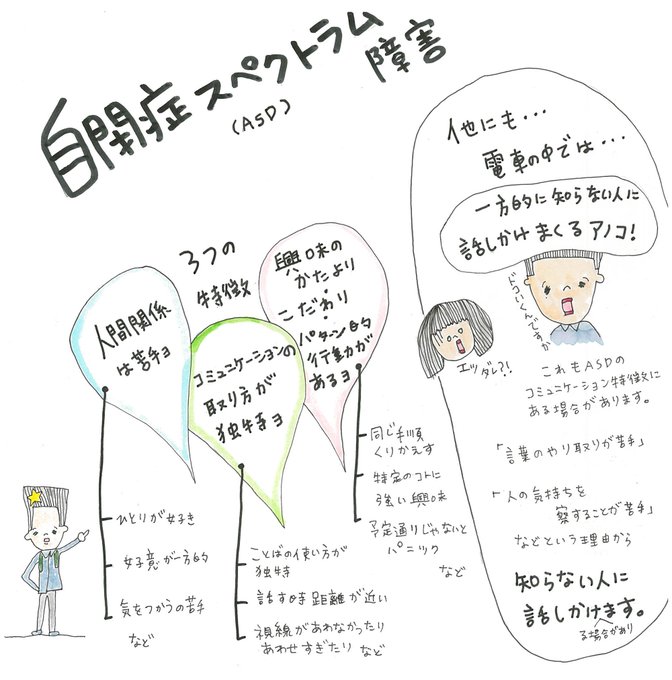 自閉症スペクトラム障害
(ASD)
3つの
特徴
人間関係
は苦手ヨ
ひとりが好き
好意が一方的
気をつかうの苦手
など
コミュニケーションの
取り方が
独特ヨ
ことばの使い方が
独特
話す時距離が近い
視線があわなかったり
あわせすぎたり など
興味の
かたより
・
こだわり
・
パターン的
行動力が
あるヨ
同じ手順
くりかえす
特定のコトに
強い興味
予定通りじゃないと
パニック
など
他にも・・・
電車の中では・・・
一方的に知らない人に
話しかけまくるアノコ!
どこいくんですか
エッダレ?!
これもASDの
コミュニケーション特徴に
ある場合があります。
「言葉のやり取りが苦手」
「人の気持ちを
察することが苦手」
などという理由から
知らない人に
話しかけます。
る場合があり